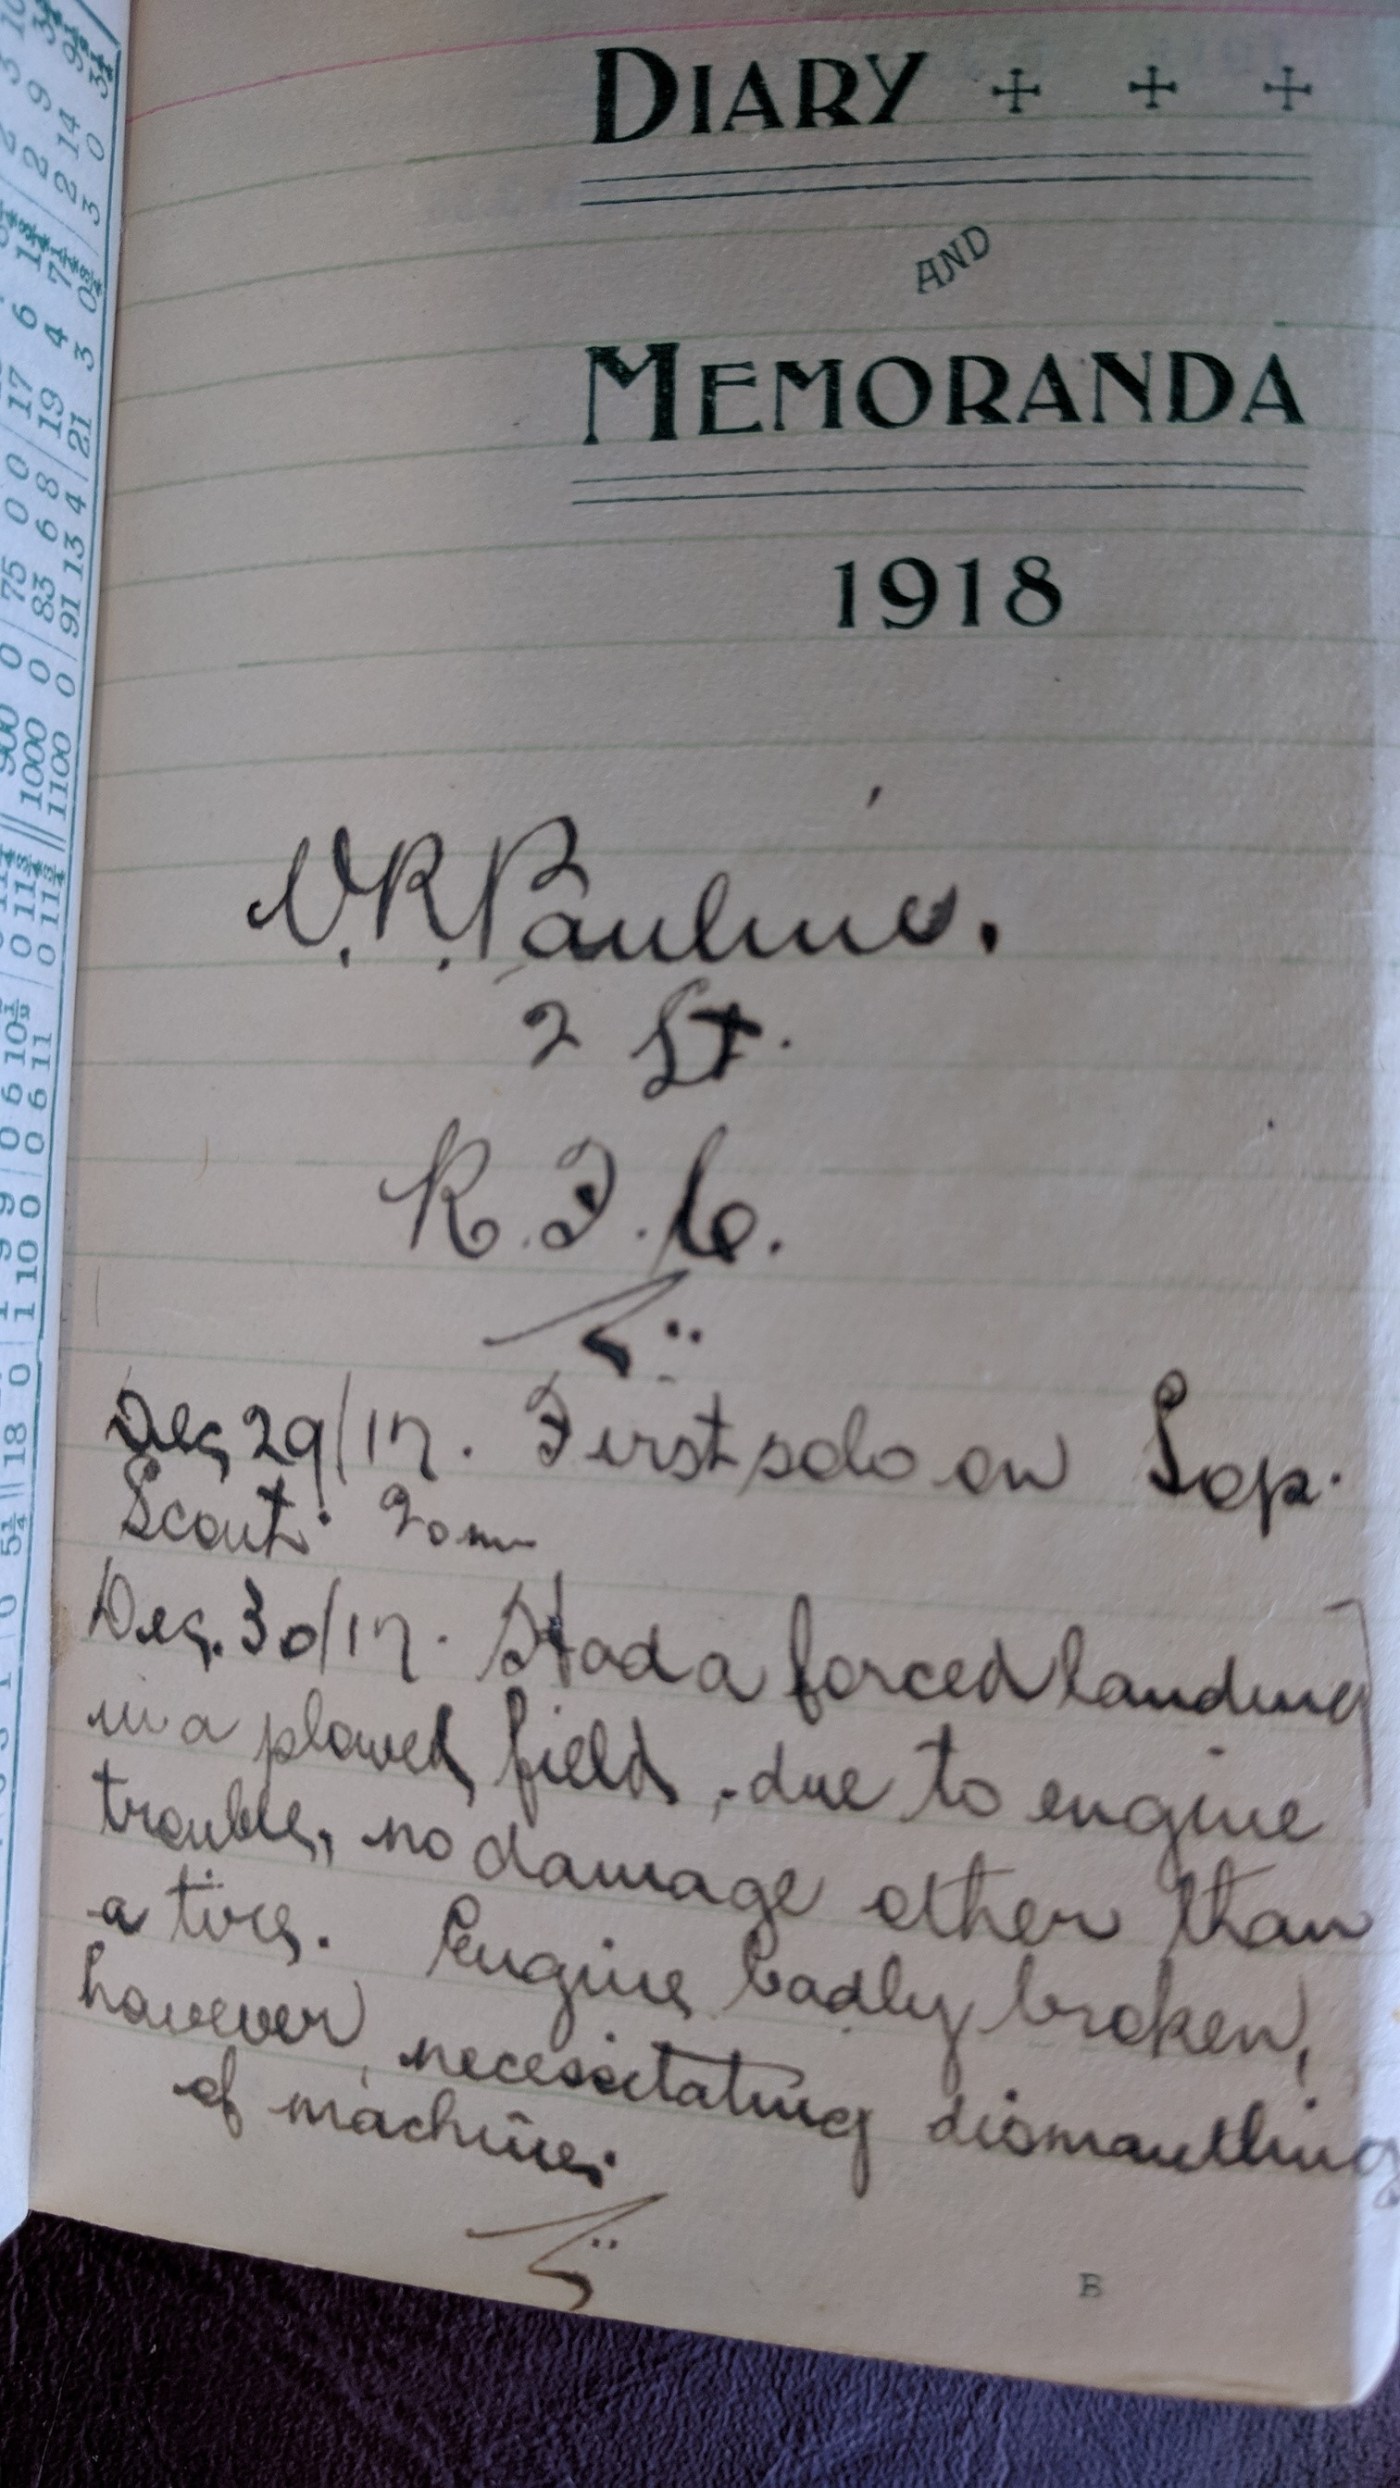 DIARY + + +
AND
MEMORANDA
1918
V.R. Pauline.
2 Lt.
R.F.C.
Dec 29/17. First solo on Sop.
Scout. 20 m
Dec. 30/17. Had a forced landing
in a plowed field, due to engine
trouble, no damage other than
a tire. Engine badly broken,
however, necessitating dismantling
of machine.
B
900 0 0 75 0 0 17
1000 0 0 83 6 8 19 4 7
1100 0 0 91 13 4 21 3 0 3 0 3